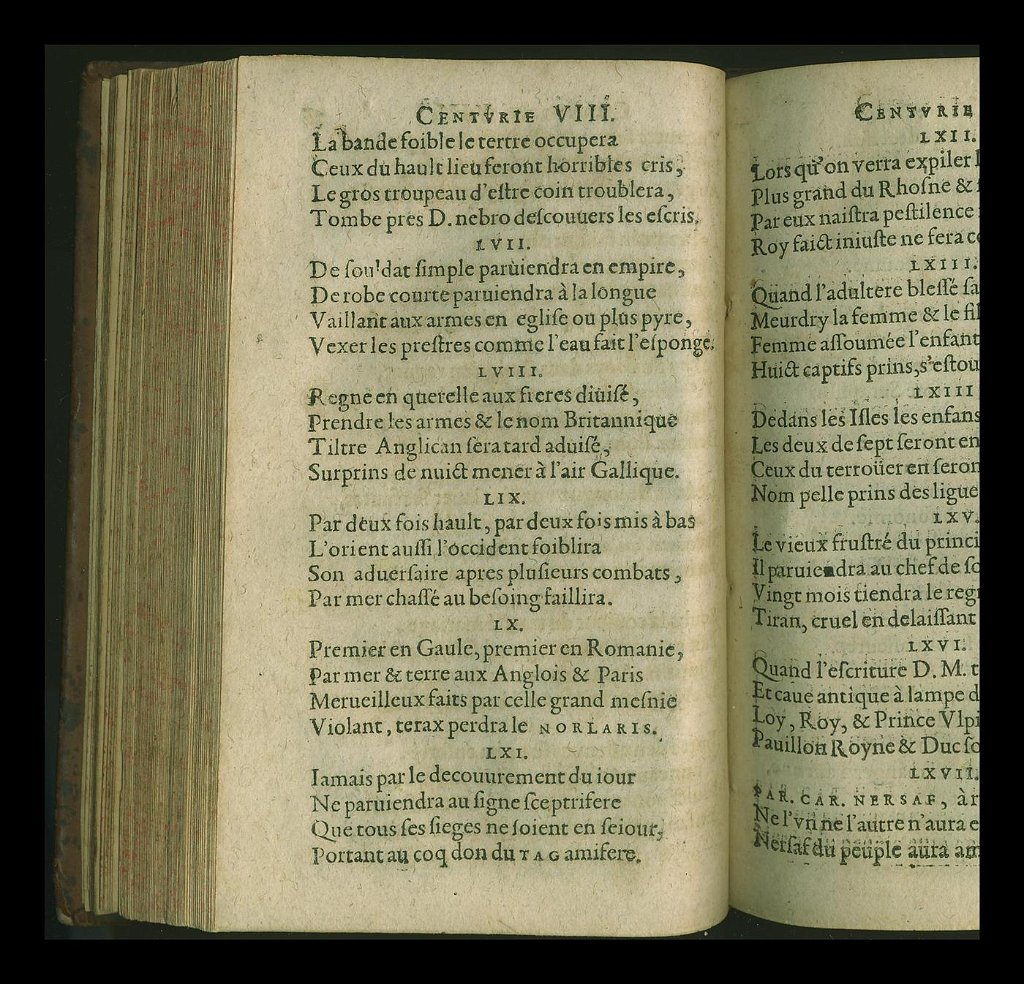 CENTVRIE VIII.
La bande foible le tertre occupera
Ceux du hault lieu feront horribles cris,
Le gros troupeau d'eſtre coin troublera,
Tombe pres D. nebro deſcouuers les eſcris.
LVII.
De ſouldat ſimple paruiendra en empire,
De robe courte paruiendra à la longue
Vaillant aux armes en egliſe ou plus pyre,
Vexer les preſtres comme l'eau fait l'eſponge.
LVIII.
Regne en querelle aux freres diuiſé,
Prendre les armes & le nom Britannique
Tiltre Anglican ſera tard aduiſé,
Surprins de nuict mener à l'air Gallique.
LIX.
Par deux fois hault, par deux fois mis à bas
L'orient auſſi l'occident foiblira
Son aduerſaire apres pluſieurs combats,
Par mer chaſſé au beſoing faillira.
LX.
Premier en Gaule, premier en Romanie,
Par mer & terre aux Anglois & Paris
Merueilleux faits par celle grand meſnie
Violant, terax perdra le NORLARIS.
LXI.
Iamais par le decouurement du iour
Ne paruiendra au ſigne ſceptrifere
Que tous ſes ſieges ne ſoient en ſeiour,
Portant au coq don du TAG amifere.
CENTVRIE
LXII.
Lors qu'on verra expiler
Plus grand du Rhoſne &
Par eux naiſtra peſtilence
Roy faict iniuſte ne fera
LXIII.
Quand l'adultere bleſſé
Meurdry la femme & le
Femme aſſoumée l'enfant
Huict captifs prins, s'eſtou
LXIII
Dedans les Iſles les enfans
Les deux de ſept ſeront en
Ceux du terroüer en ſeron
Nom pelle prins des ligue
LXV.
Le vieux fruſtré du princi
Il paruiendra au chef de
Vingt mois tiendra le reg
Tiran, cruel en delaiſſant
LXVI.
Quand l'eſcriture D. M.
Et caue antique à lampe
Loy, Roy, & Prince Vlpi
Pauillon Royne & Duc
LXVII.
PAR. CAR. NERSAF, à
Ne l'vn ne l'autre n'aura
Nerſaf du peuple aura